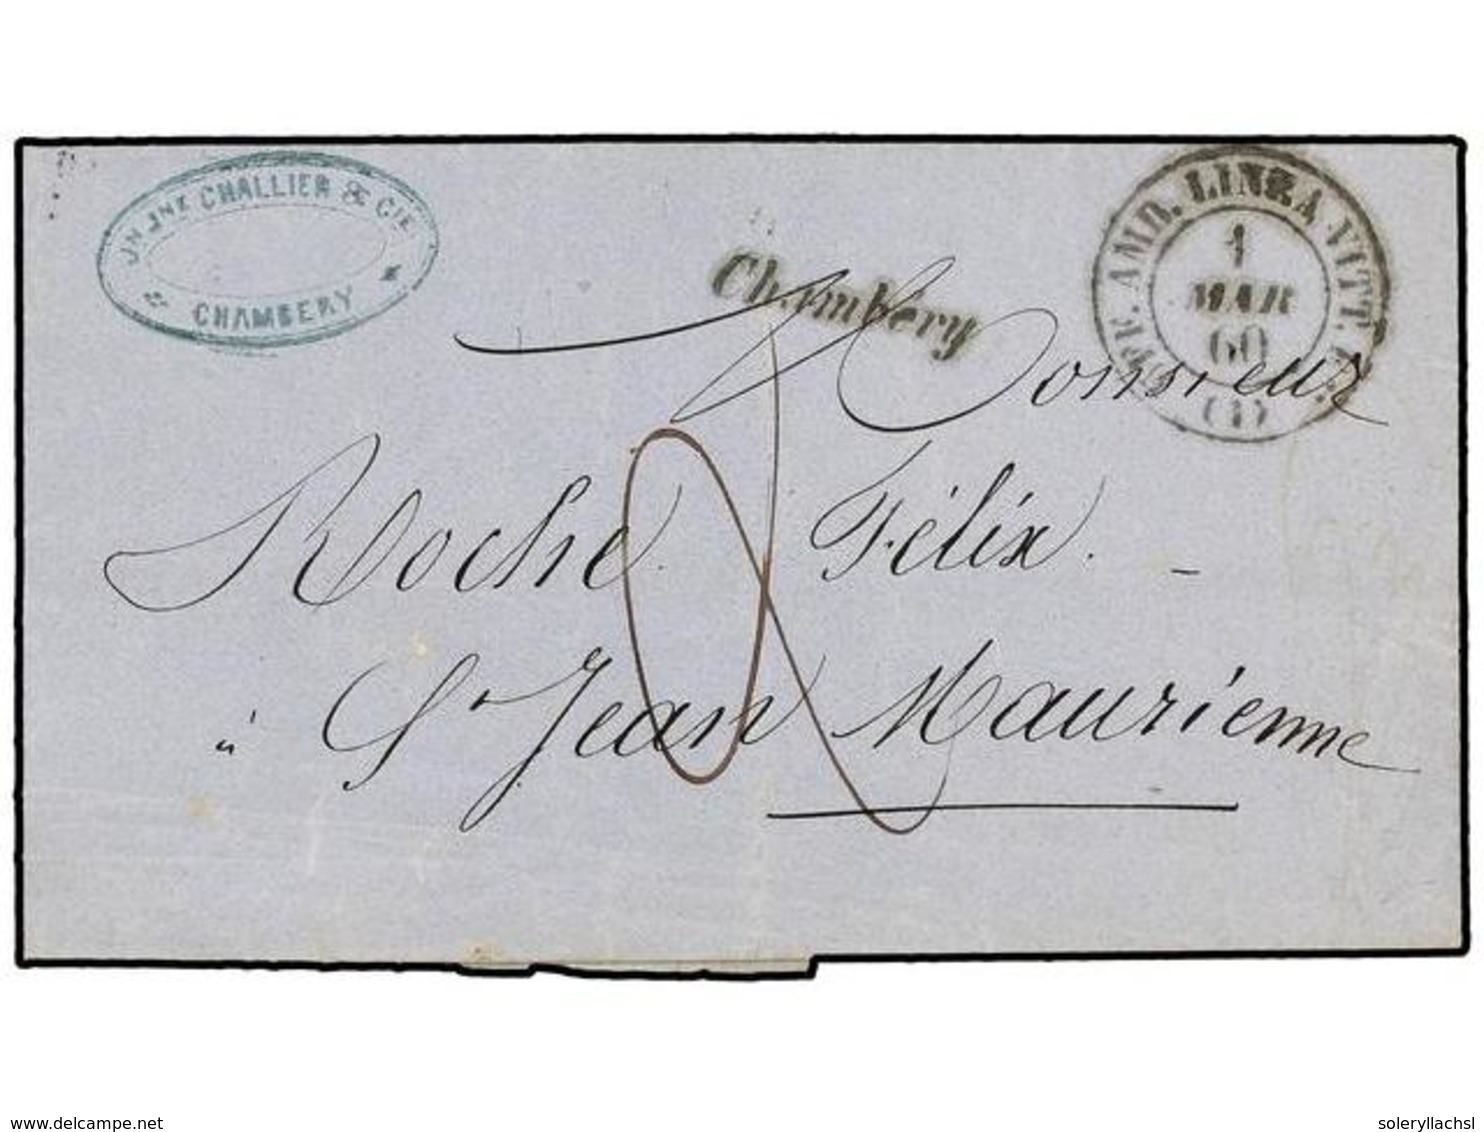 JH JNE CHALLIER & CIE
CHAMBERY
Chambéry
AMB. LINEA VITT.
1
MAR
60
(1)
Monsieur
Roche Félix
à St Jean Maurienne
www.delcampe.net
soleryllachsl